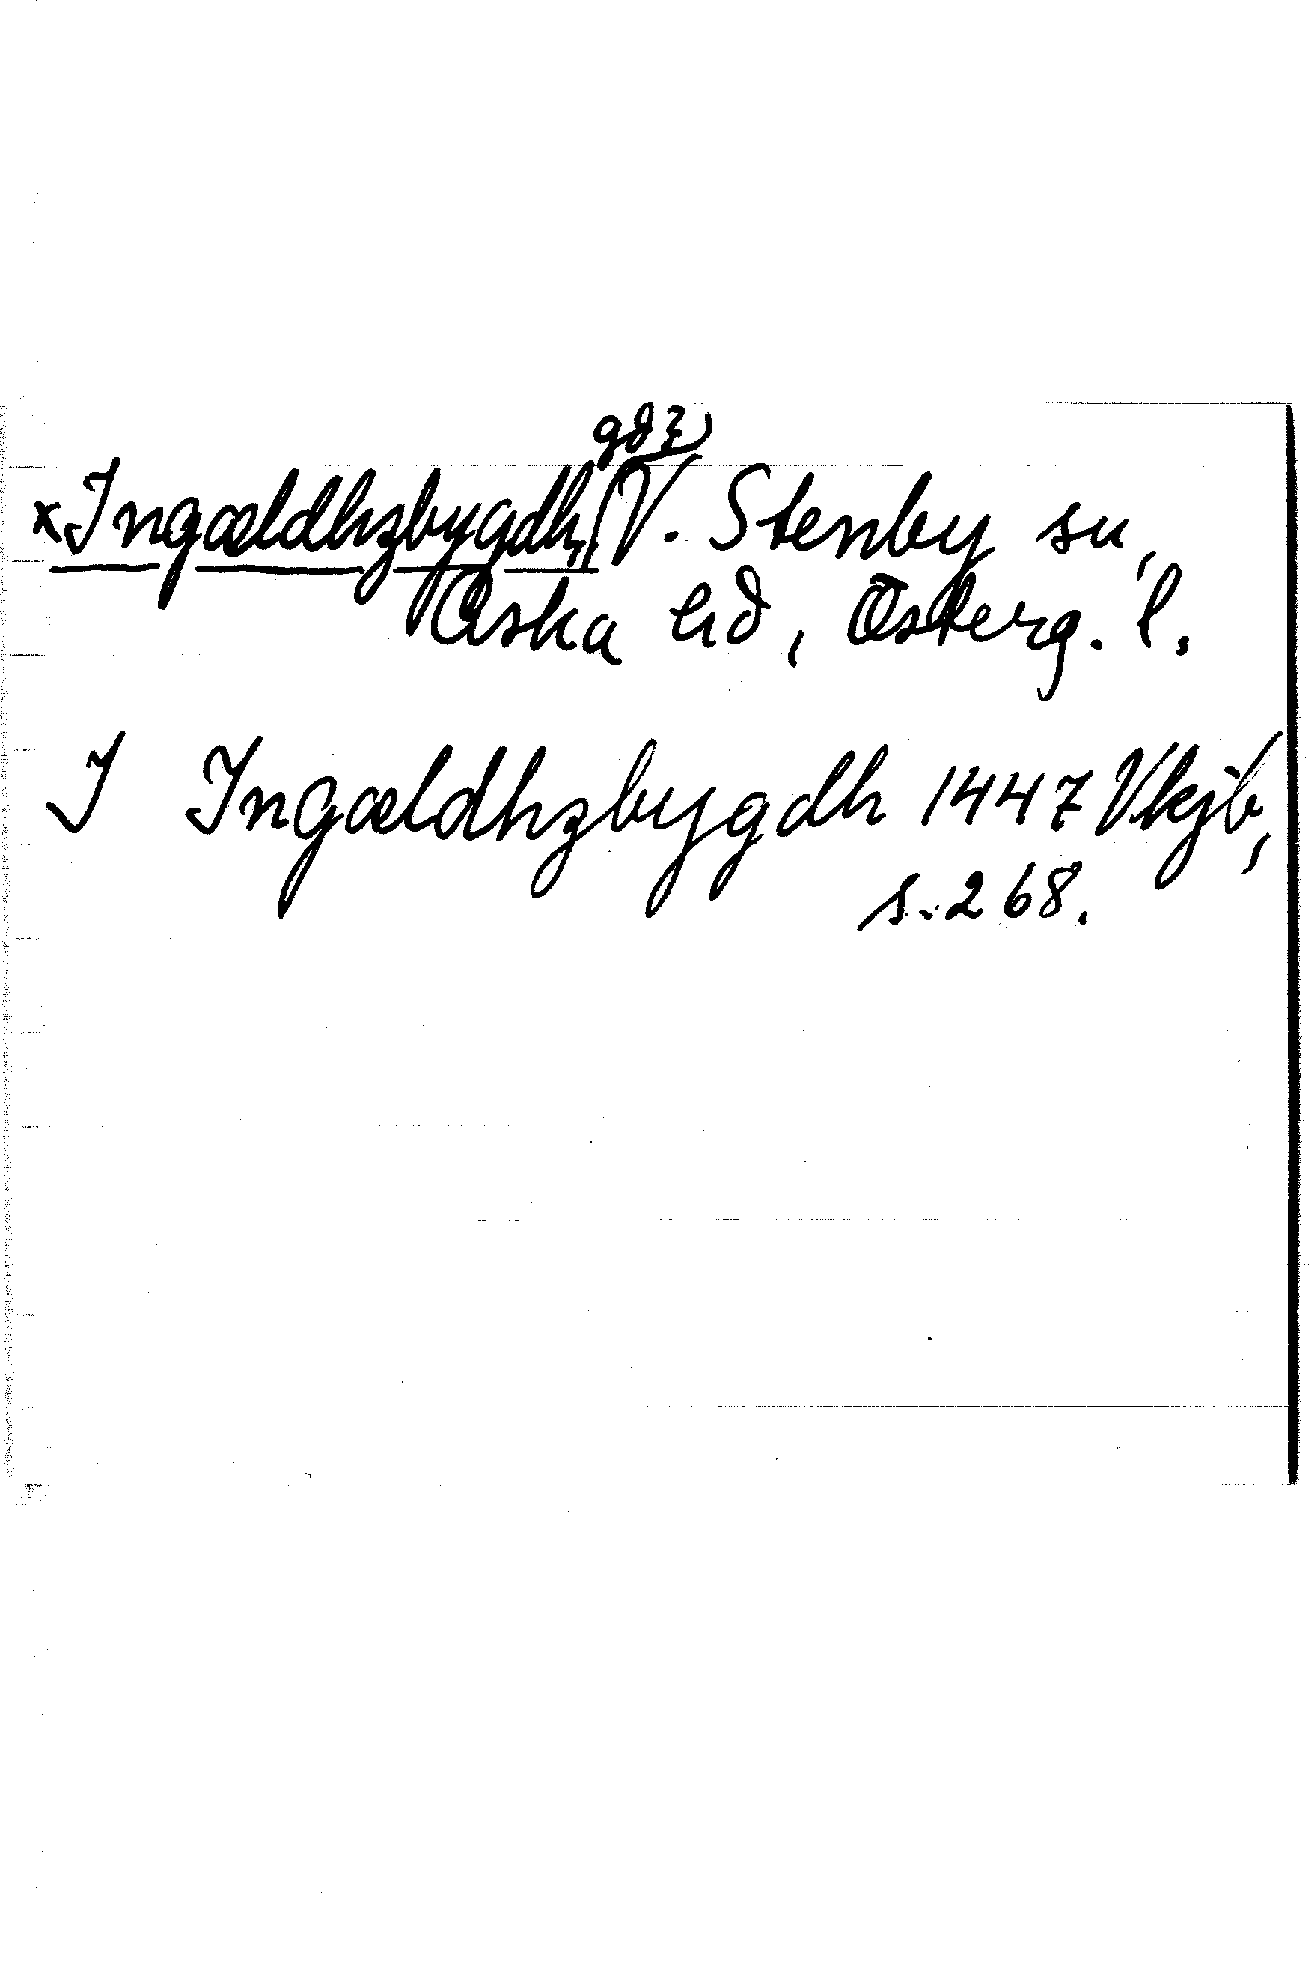 gd?,
×Ingældhzbygdh, V. Stenby sn,
Aska hd, Österg. l.
J Ingældhzbygdh 1447 Vkjb,
s. 268.